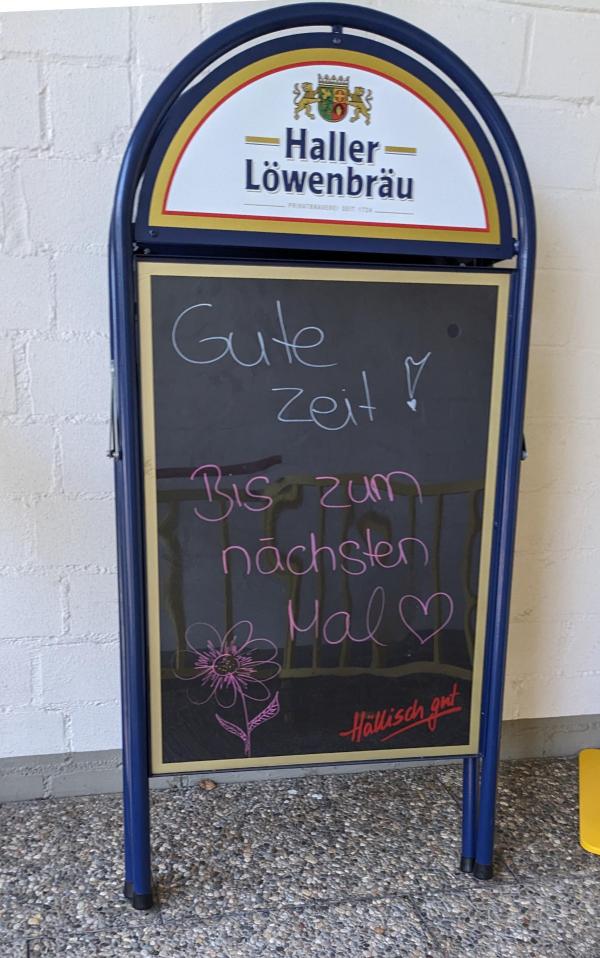 Haller
Löwenbräu
PRIVATBRAUEREI SEIT 1724
Gute
zeit!
Bis zum
nächsten
Mal
Hällisch gut